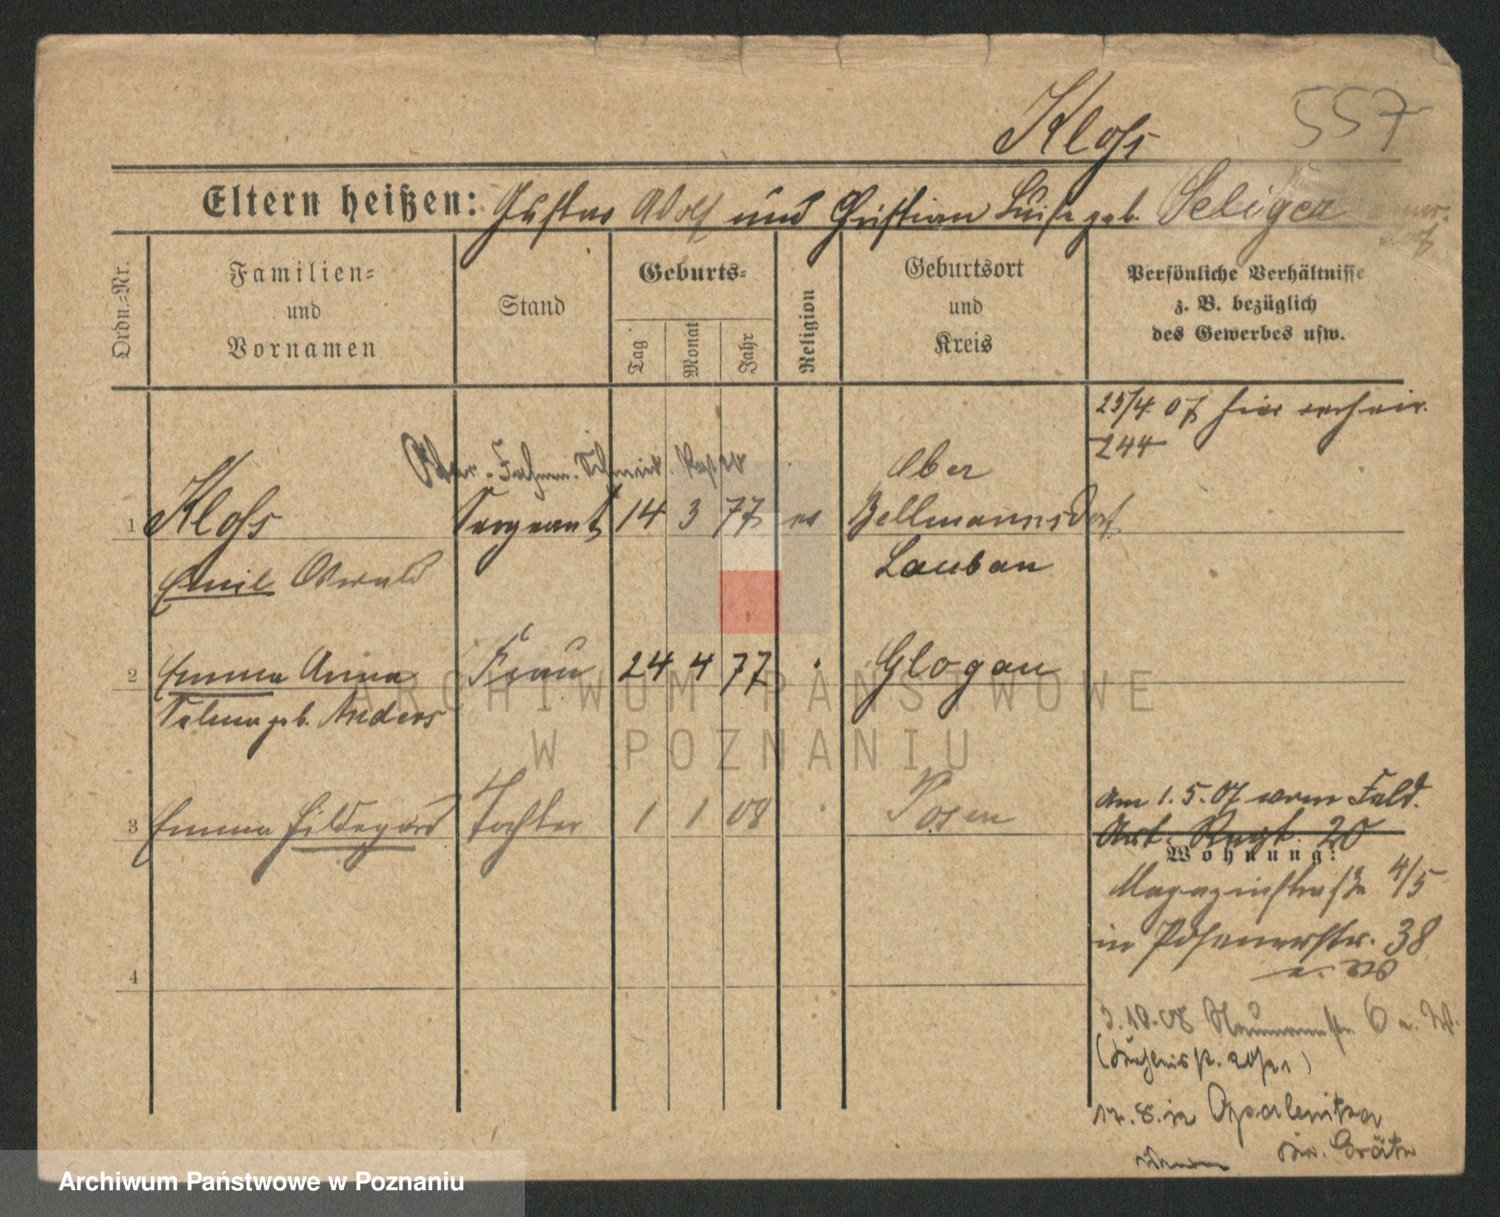 557
Kloss
Eltern heißen: Gustav Adolf und Christian Luise geb. Seliger
Ordn.-Nr.
Familien-
und
Vornamen
Stand
Geburts-
Tag
Monat
Jahr
Religion
Geburtsort
und
Kreis
Persönliche Verhältnisse
z. B. bezüglich
des Gewerbes usw.
23/4 07 hier
244
Ober-
Ober
1 Kloss Sergeant 14 3 77 ev Zellmannsdorf
Emil Oswald Lauban
2 Emma Anna Frau 24 4 77 Glogau
Selma geb. Anders
3 Emma Hildegard Tochter 1 1 08 Posen
Am 1.5.07 vom Feld.
Art. Regt. 20
Wohnung:
Magazinstraße 4/5
in Posenerstr. 38
3.10.08 6
4
in Opalenitza
Kr. Grätz
ARCHIWUM PAŃSTWOWE
W POZNANIU
Archiwum Państwowe w Poznaniu